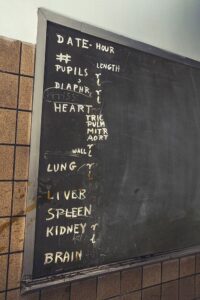 DATE - HOUR
#
PUPILS LENGTH
DIAPHR
HEART
TRIC
PULM
MITR
AORT
WALL
LUNG
LIVER
SPLEEN
KIDNEY
BRAIN